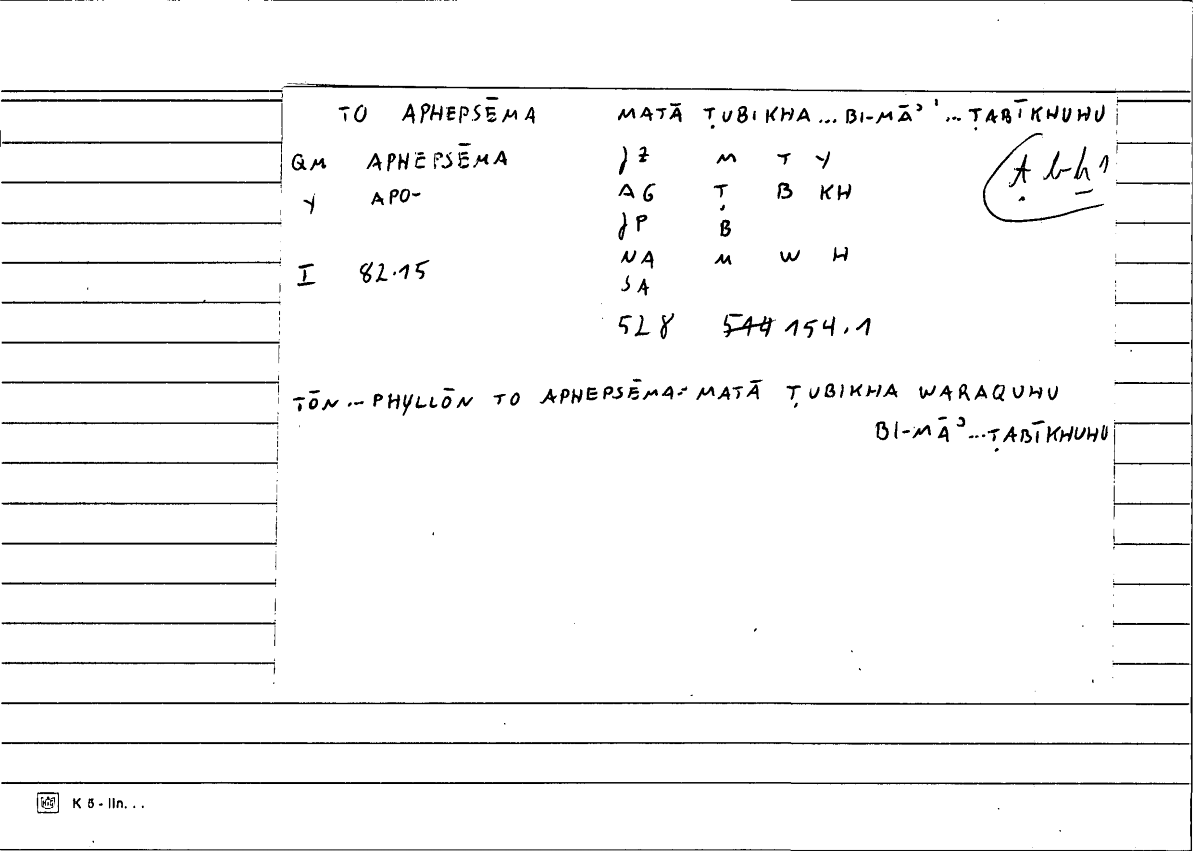 TO APHEPSĒMA MATĀ ṬUBIKHA ... BI-MĀʾ ... ṬABĪKHUHU
QM APHEPSĒMA JZ M T Y
Y APO- AG Ṭ B KH
JP B
NA M W H
I 82.15 SA
528 154.1
TŌN ... PHYLLŌN TO APHEPSĒMA = MATĀ ṬUBIKHA WARAQUHU
BI-MĀʾ ... ṬABĪKHUHU
K 5 - lln. . .